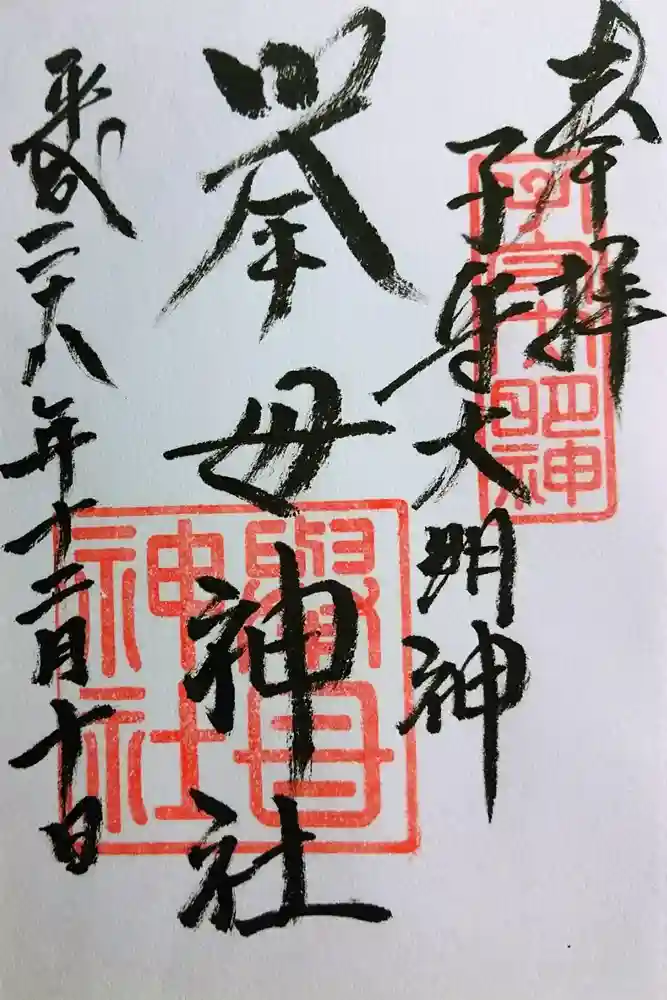 奉拝
子守大明神
挙母神社
平成二十八年十二月十日
子守大明神
擧母神社